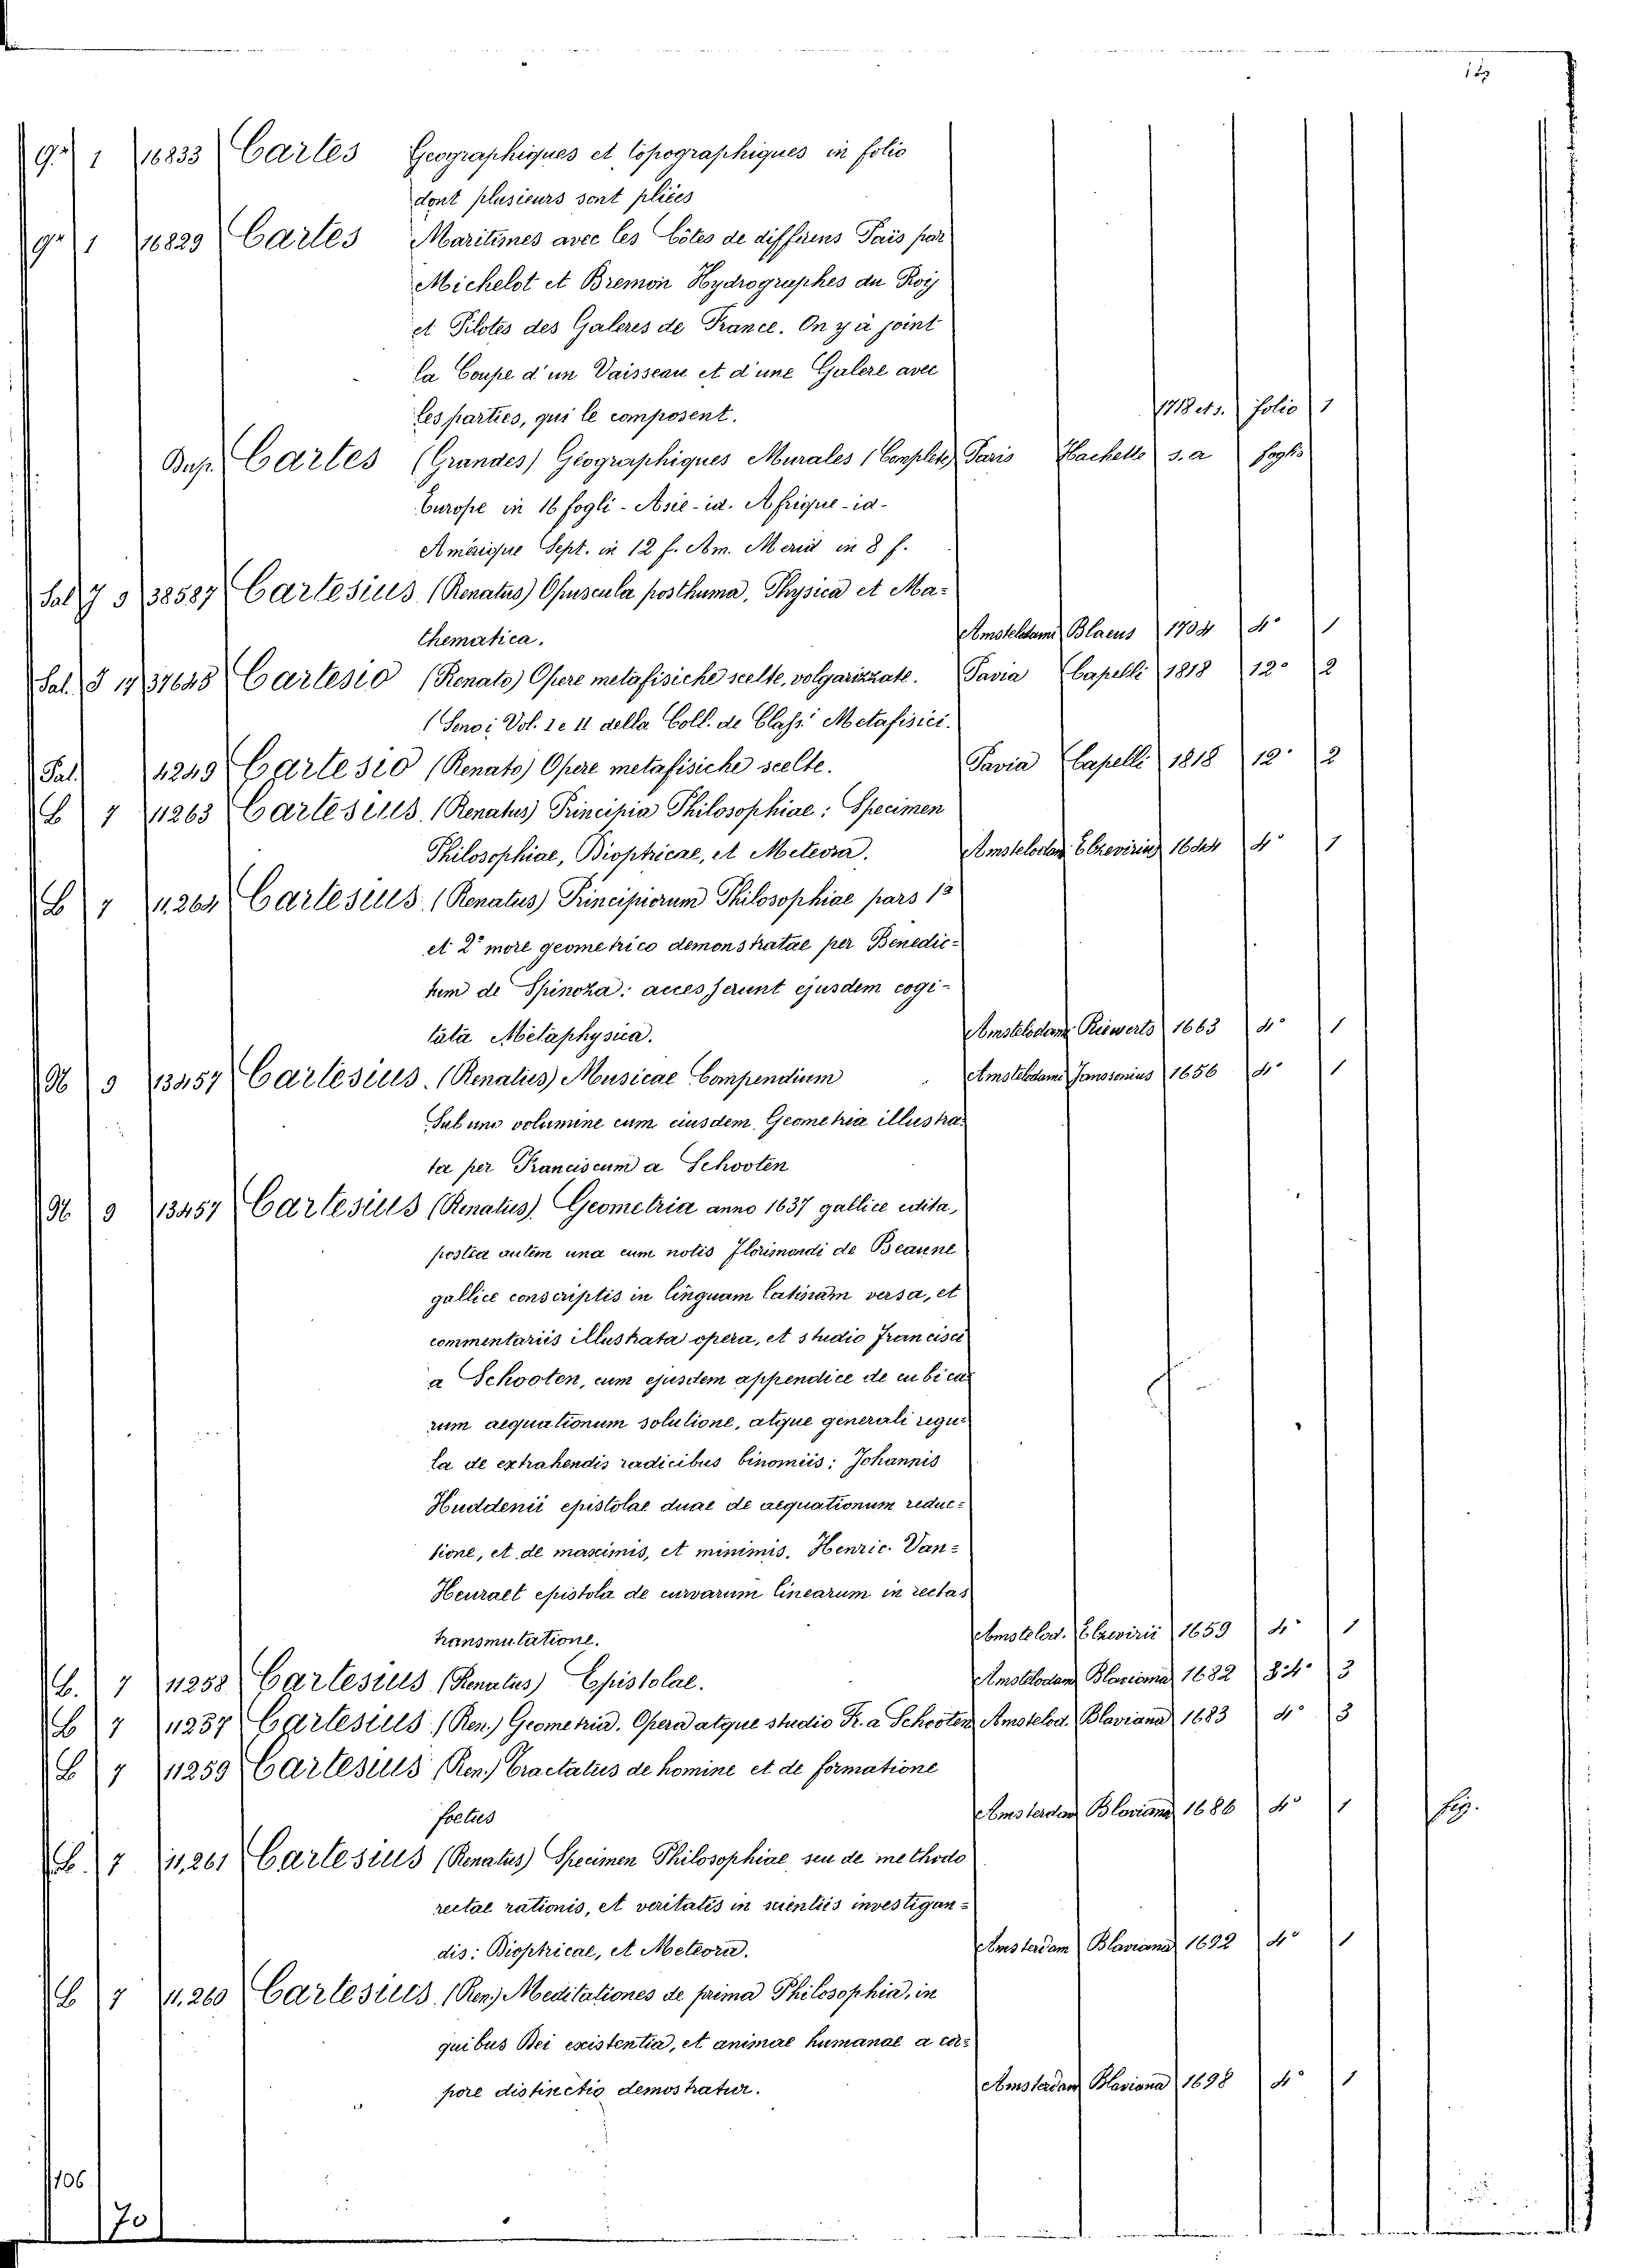 Gr. 1 16833 Cartes Geographiques et topographiques in folio
dont plusieurs sont pliées
gr. 1 16829 Cartes Maritimes avec les Côtes de differens Païs par
Michelot et Bremon Hydrographes du Roy
et Pilotes des Galeres de France. On y à joint
la Coupe d'un Vaisseau et d'une Galere avec
les parties, qui le composent. 1718 et s. folio 1
Dup. Cartes (Grandes) Géographiques Murales (Complete) Paris Hachette s. a foglio
Europe in 16 fogli - Asie - id. Afrique - id -
Amérique Sept. in 12 f. Am. Merid in 8 f.
Sal J 3 38587 Cartesius (Renatus) Opuscula posthuma, Physica et Ma=
thematica. Amstelodami Blaeus 1704 4° 1
Sal. J 17 37645 Cartesio (Renato) Opere metafisiche scelte, volgarizzate. Pavia Capelli 1818 12° 2
(Sono i Vol. 1 e 11 della Coll. de Class: Metafisici.
Sal. 4249 Cartesio (Renato) Opere metafisiche scelte. Pavia Capelli 1818 12° 2
E 7 11263 Cartesius (Renatus) Principia Philosophiae: Specimen
Philosophiae, Dioptricae, et Meteora. Amstelodami Elzeviriis 1644 4° 1
E 7 11.264 Cartesius (Renatus) Principiorum Philosophiae pars 1ª
et 2ª more geometrico demonstratae per Benedic=
tum de Spinoza: accesserunt ejusdem cogi-
tata Metaphysica. Amstelodami Riewerts 1663 4° 1
N 9 13457 Cartesius (Renatus) Musicae Compendium Amstelodami Janssonius 1656 4° 1
Sub uno volumine cum eiusdem Geometria illustra=
ta per Franciscum a Schooten
N 9 13457 Cartesius (Renatus) Geometria anno 1637 gallice edita,
postea autem una cum notis Florimondi de Beaune
gallice conscriptis in linguam latinam versa, et
commentariis illustrata opera, et studio Francisci
a Schooten, cum ejusdem appendice de cubica=
rum aequationum solutione, atque generali regu=
la de extrahendis radicibus binomiis: Johannis
Huddenii epistolae duae de aequationum reduc=
tione, et de maximis, et minimis. Henric. Van=
Heuraet epistola de curvarum linearum in rectas
transmutatione. Amstelod. Elzevirii 1659 4° 1
E. 7 11258 Cartesius (Renatus) Epistolae. Amstelodami Blaviana 1682 4° 3
E 7 11257 Cartesius (Ren.) Geometria. Opera atque studio Fr. a Schooten Amstelod. Blaviana 1683 4° 3
E 7 11259 Cartesius (Ren.) Tractatus de homine et de formatione
foetus Amsterdam Blaviana 1686 4° 1 fig.
E. 7 11,261 Cartesius (Renatus) Specimen Philosophiae seu de methodo
rectae rationis, et veritatis in scientiis investigan=
dis: Dioptricae, et Meteora. Amsterdam Blaviana 1692 4° 1
E 7 11.260 Cartesius (Ren.) Meditationes de prima Philosophia, in
quibus Dei existentia, et animae humanae a cor=
pore distinctio demostratur. Amsterdam Blaviana 1698 4° 1
106
70